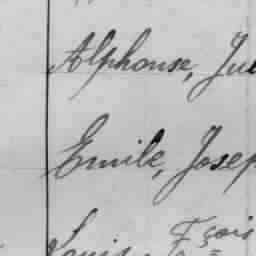 Alphonse, Jul
Emile, Josep
Louis, Fçois